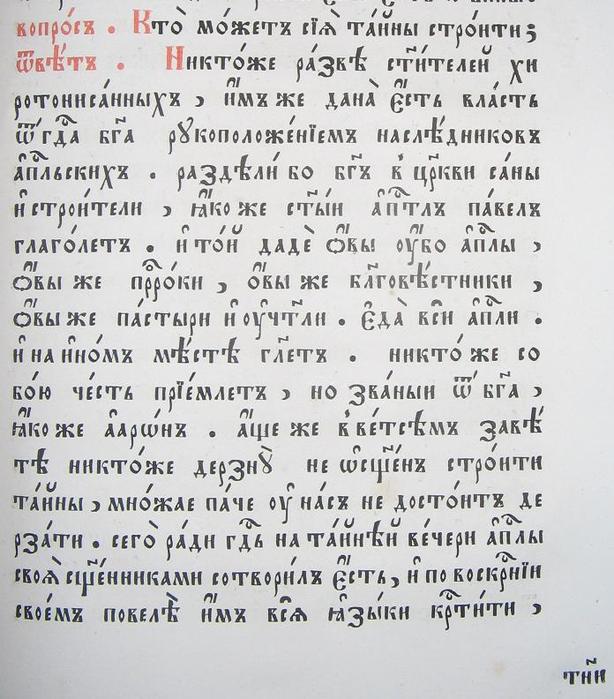 вопро́съ . Кто̀ мо́жетъ сїѧ̀ та́йны стро́ити;
ѿвѣ́тъ . Никто́же ра́звѣ ст҃и́телей хи
ротониса́нныхъ , и҆́мъ же дана̀ є҆́сть вла́сть
ѿ гдⷭ҇а бг҃а рꙋкоположе́нїемъ наслѣ́дниковъ
а҆пⷭ҇льскихъ . раздѣли́ бо бг҃ъ в цр҃кви са́ны
и҆ строи́тели , ꙗ҆́ко же ст҃ы́и а҆пⷭ҇тлъ па́велъ
глаго́летъ . и҆ то́й дадѐ ѻ҆́вы ѹ҆́бо а҆пⷭ҇лы ,
ѻ҆́вы же прⷪ҇ро́ки , ѻ҆́вы же бл҃говѣ́стники ,
ѻ҆́вы же па́стыри и҆ ѹ҆чт҃ли . є҆да̀ всѝ а҆пⷭ҇ли .
и҆ на и҆но́мъ мѣ́стѣ гл҃етъ . никто́ же со
бо́ю че́сть прїе́млетъ , но зва́ныи ѿ бг҃а ,
ꙗ҆́ко же а҆арѡ́нъ . а҆́ще же в ве́тсѣмъ завѣ́
тѣ никто́же дерзнꙋ̀ не ѡ҆сщ҃е́нъ стро́ити
та́йны , мно́жае па́че ѹ҆ на́съ не досто́итъ де
рза́ти . сего̀ ра́ди гдⷭ҇ь на та́йнѣй ве́чери а҆пⷭ҇лы
своѧ̀ сщ҃е́нниками сотвори́лъ є҆́сть , и҆ по воскрⷭ҇нїи
свое́мъ повелѣ̀ и҆̀мъ всѧ̀ ꙗ҆зы́ки крⷭ҇ти́ти ,
тни҃и